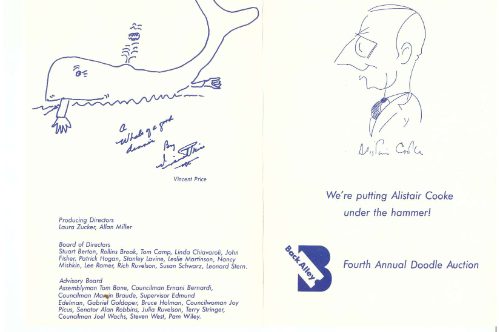 A
Whale of a good
By
Vincent Price
Producing Directors
Laura Zucker, Allan Miller
Board of Directors
Stuart Berton, Rollins Brook, Tom Camp, Linda Chiavaroli, John
Fisher, Patrick Hogan, Stanley Lavine, Leslie Martinson, Nancy
Mishkin, Lee Romer, Rich Ruvelson, Susan Schwarz, Leonard Stern.
Advisory Board
Assemblyman Tom Bane, Councilman Ernani Bernardi,
Councilman Marvin Braude, Supervisor Edmund
Edelman, Gabriel Goldaper, Bruce Holman, Councilwoman Joy
Picus, Senator Alan Robbins, Julia Ruvelson, Terry Stringer,
Councilman Joel Wachs, Steven West, Pam Wiley.
Alistair Cooke
We're putting Alistair Cooke
under the hammer!
Back Alley
Fourth Annual Doodle Auction